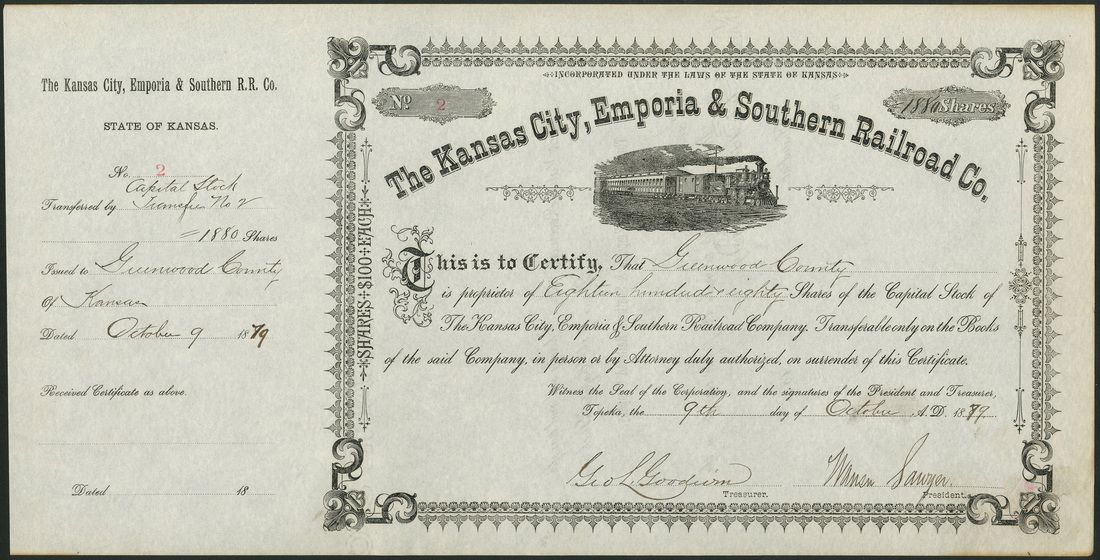 The Kansas City, Emporia & Southern R.R. Co.
STATE OF KANSAS.
No. 2
Capital Stock
Transferred by Transfer No 2
=1880 Shares
Issued to Greenwood County
Of Kansas
Dated October 9 1879
Received Certificate as above.
Dated 18
INCORPORATED UNDER THE LAWS OF THE STATE OF KANSAS
No 2
=1880 Shares
The Kansas City, Emporia & Southern Railroad Co.
SHARES $100 EACH
This is to Certify, That Greenwood County
is proprietor of Eighteen hundred & eighty Shares of the Capital Stock of
The Kansas City, Emporia & Southern Railroad Company. Transferable only on the Books
of the said Company, in person or by Attorney duly authorized, on surrender of this Certificate.
Witness the Seal of the Corporation, and the signatures of the President and Treasurer,
Topeka, the 9th day of October A.D. 1879.
Geo L. Goodwin Warren Sawyer.
Treasurer. President.